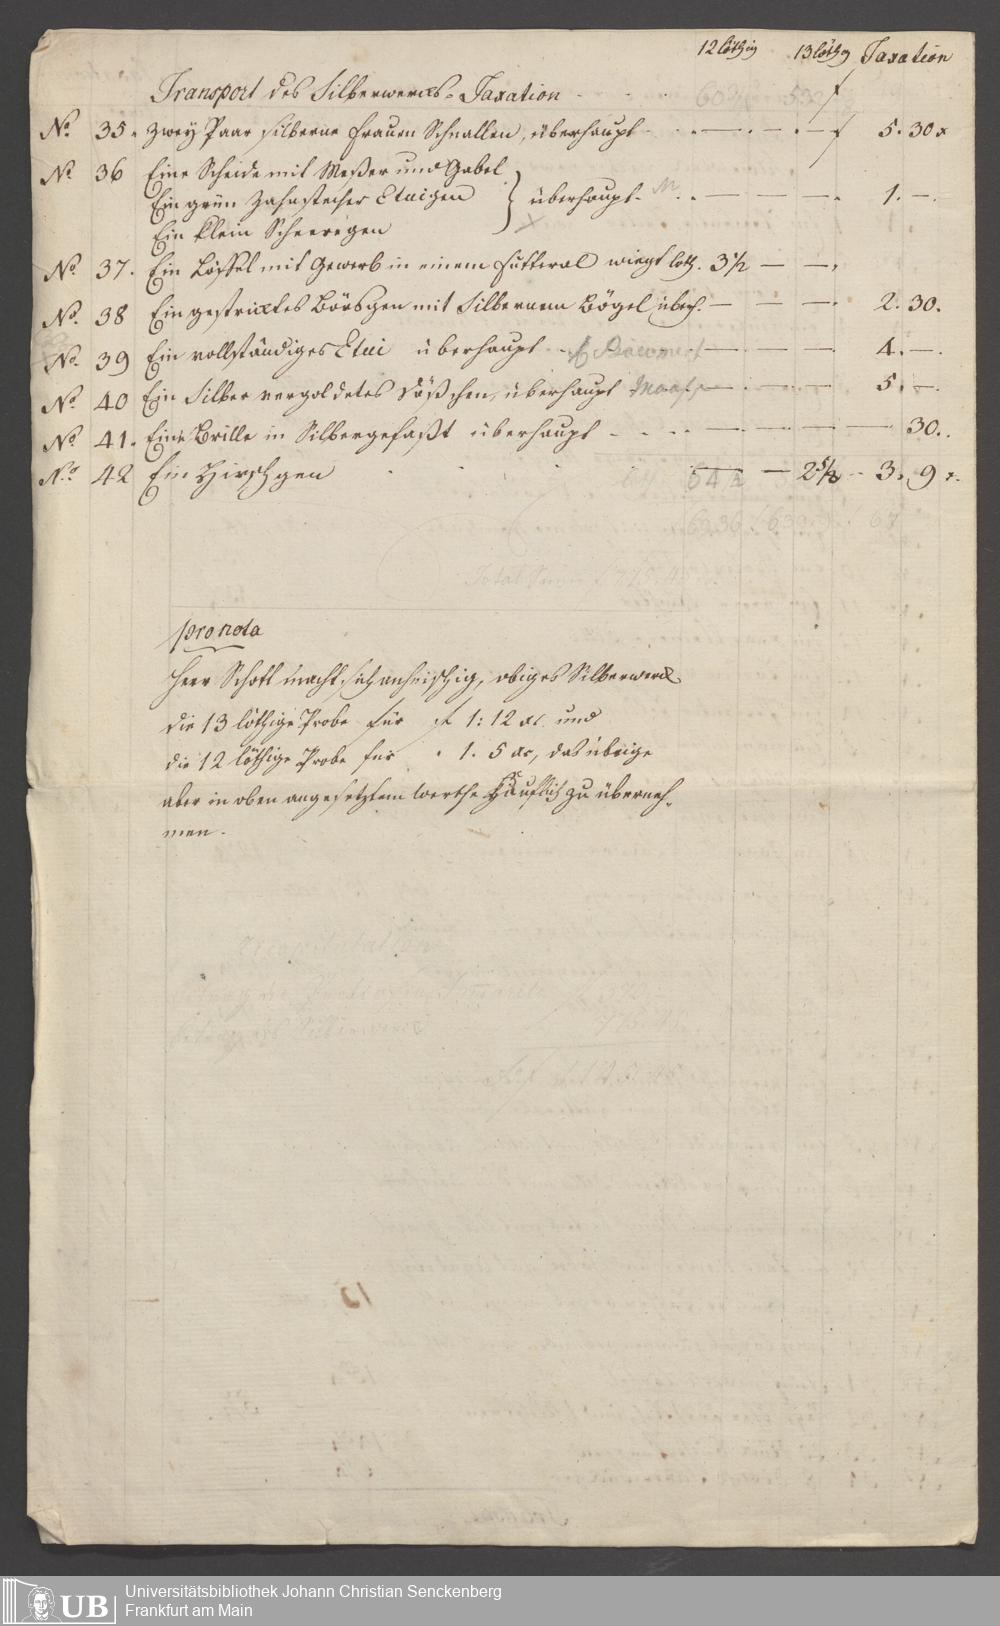 12 löthig 13 löthig Taxation
Transport des Silberwercks-Taxation - f
No. 35. Zwey Paar silberne Frauen Schnallen, überhaupt - . — . — . — f 5. 30 x
No. 36 Eine Scheide mit Meßer und Gabel
Ein grün Zahnstecher Etuigen } überhaupt - M . — . — . 1. —.
Ein klein Scheeregen
No. 37. Ein Löffel mit Gewerb in einem Futteral wiegt loth. 3 1/2 — — .
No. 38 Ein gestricktes Börsgen mit Silbernem Bögel überh. — — — . 2. 30.
No. 39 Ein vollständiges Etui überhaupt — — — 4. —.
No. 40 Ein Silber vergoldetes Döschen, überhaupt — — — 5. —.
No. 41. Eine Brille in Silbergefaßt überhaupt — — — — 30..
No. 42 Ein Hirschgen — — 2 5/8 - 3. 9 x.
64 1/2
Total Summ f 775. 45
pro nota
Herr Schott macht sich anheischig, obiges Silberwerck
die 13 löthige Probe für f 1: 12 xr. und
die 12 löthige Probe für " 1. 5 xr, das übrige
aber in oben angesetztem Werthe käuflich zu überneh-
men.
Recapitulation
15
Universitätsbibliothek Johann Christian Senckenberg
UB Frankfurt am Main